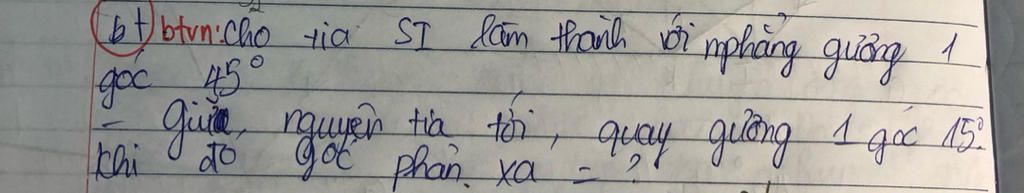 bt btvn: cho tia SI làm thành với mphẳng gương 1
góc 45°
- Giữ nguyên tia tới, quay gương 1 góc 15°.
khi đó góc phản xạ = ?